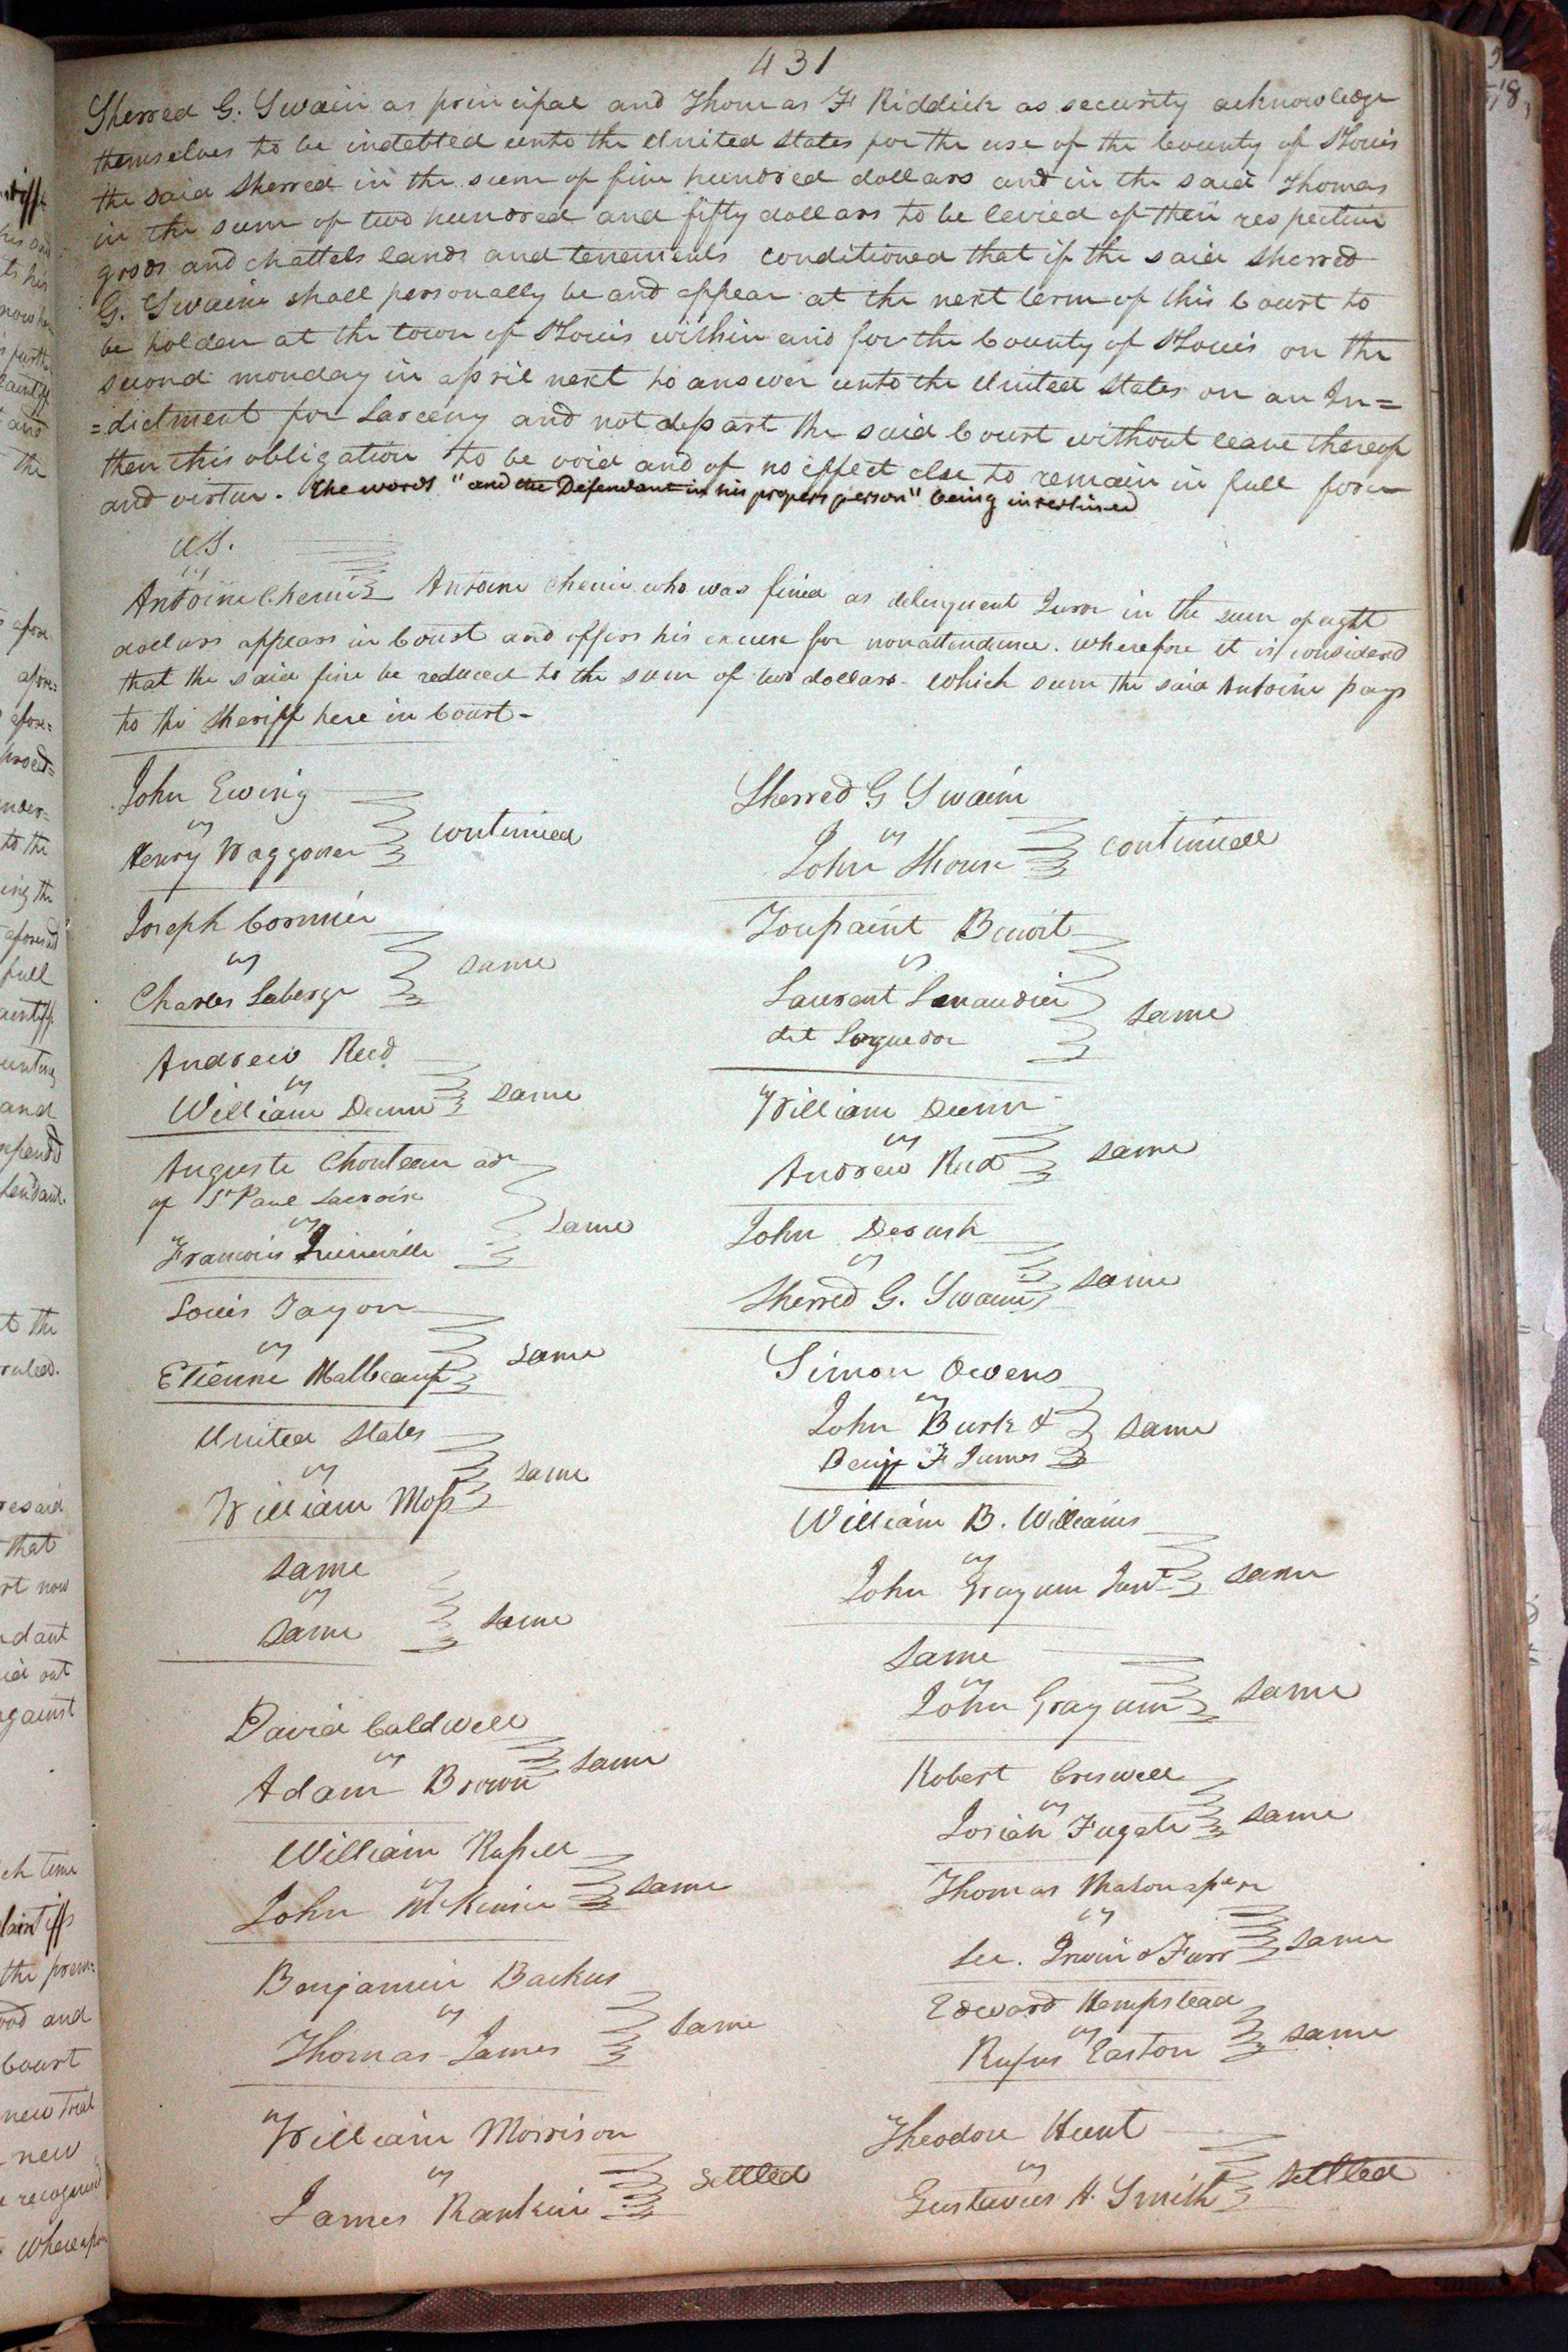 431
Sherred G. Swain as principal and Thomas F Riddick as security acknowledge
themselves to be indebted unto the United States for the use of the County of St Louis
the said Sherred in the sum of five hundred dollars and in the said Thomas
in the sum of two hundred and fifty dollars to be levied of their respective
goods and chattels lands and tenements conditioned that if the said Sherred
G. Swain shall personally be and appear at the next term of this Court to
be holden at the town of St Louis within and for the County of St Louis on the
second monday in april next to answer unto the United States on an In=
=dictment for Larceny and not depart the said Court without leave thereof
then this obligation to be void and of no effect else to remain in full force
and virtue. The words "and the Defendant in his proper person" being interlined
U.S.
vs
Antoine Chenie Antoine Chenie who was fined as delinquent Juror in the sum of eight
dollars appears in Court and offers his excuse for nonattendance. wherefore it is considered
that the said fine be reduced to the sum of two dollars. which sum the said Antoine pays
to the Sheriff here in Court-
John Ewing
vs
Henry Waggoner continued
Joseph Cormier
vs
Charles Laberge same
Andrew Reed
vs
William Dunn same
Auguste Chouteau adr
of St Paul Lacroix
vs
Francois same
Louis Tayon
vs
Etienne Malbeauf same
United States
vs
William Moss same
same
vs
same same
David Caldwell
vs
Adam Brown same
William Russell
vs
John McKinnie same
Benjamin Backus
vs
Thomas James same
William Morrison
vs
James Rankin settled
Sherred G Swain
vs
John Shouse continued
Toussaint Benoit
vs
Laurent
dit same
William Dunn
vs
Andrew Reed same
John Derush
vs
Sherred G. Swain same
Simon Owens
vs
John Burk &
Benj F James same
William B. Williams
vs
John Grayum Junr same
same
vs
John Grayum same
Robert Criswell
vs
Josiah Fugate same
Thomas
vs
Lee. Irwin & Farr same
Edward Hempstead
vs
Rufus Easton same
Theodore Hunt
vs
Gustavus A. Smith settled